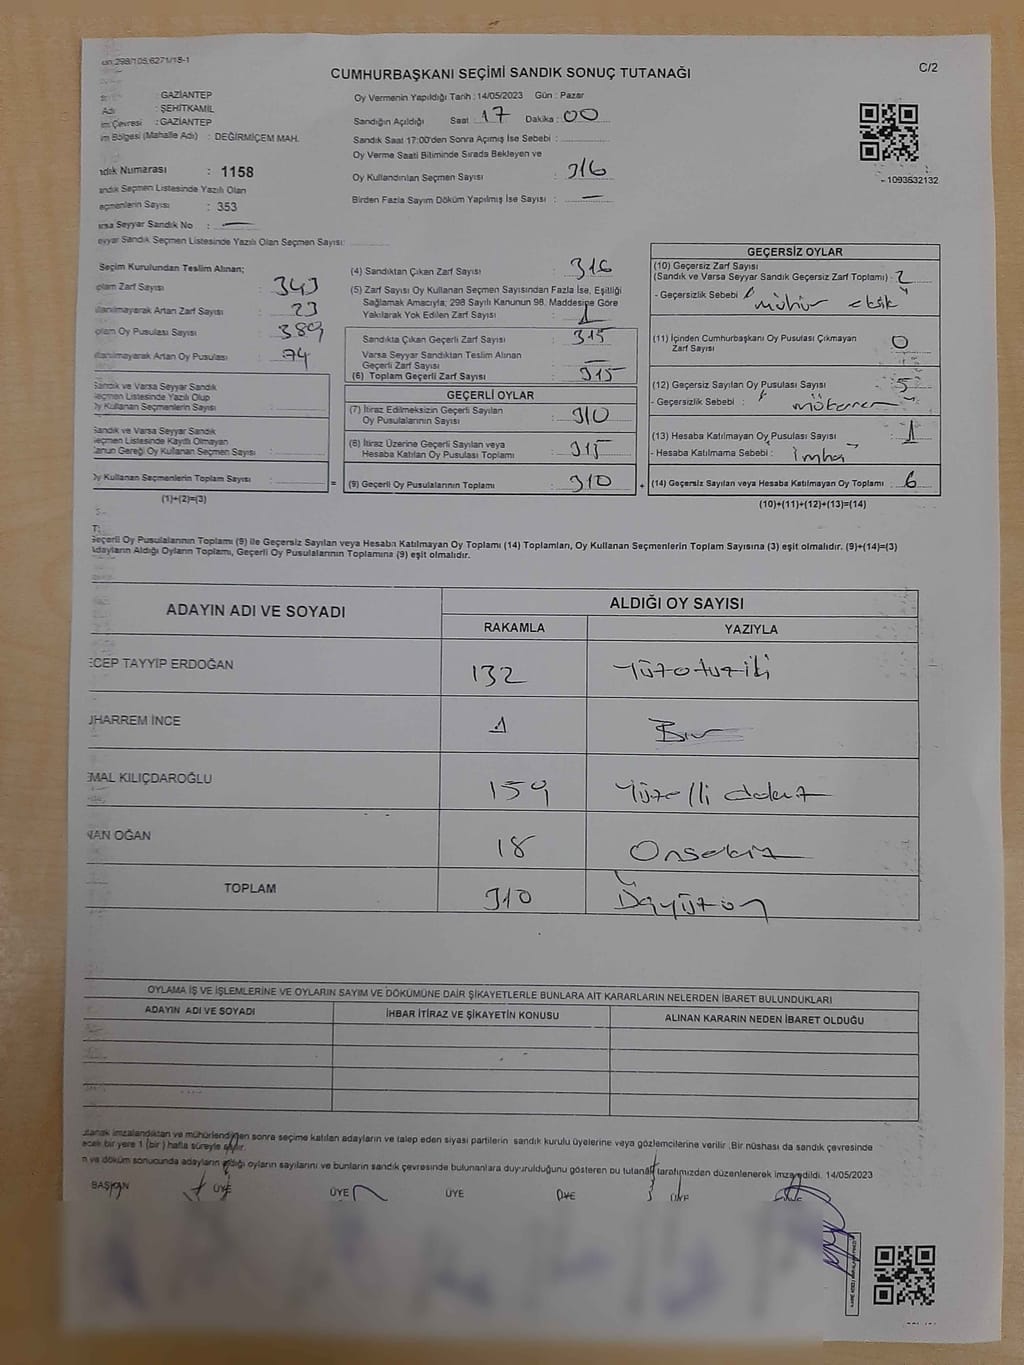 un:298/105,6271/18-1
CUMHURBAŞKANI SEÇİMİ SANDIK SONUÇ TUTANAĞI
C/2
: GAZİANTEP
Adı : ŞEHİTKAMİL
im Çevresi : GAZİANTEP
im Bölgesi (Mahalle Adı) : DEĞİRMİÇEM MAH.
Oy Vermenin Yapıldığı Tarih : 14/05/2023 Gün : Pazar
Sandığın Açıldığı Saat : 17 Dakika : 00
Sandık Saat 17:00'den Sonra Açılmış İse Sebebi :
Oy Verme Saati Bitiminde Sırada Bekleyen ve
Oy Kullandırılan Seçmen Sayısı : 316
Birden Fazla Sayım Döküm Yapılmış İse Sayısı : —
1093632132
ndık Numarası : 1158
andık Seçmen Listesinde Yazılı Olan
eçmenlerin Sayısı : 353
arsa Seyyar Sandık No : —
eyyar Sandık Seçmen Listesinde Yazılı Olan Seçmen Sayısı:
Seçim Kurulundan Teslim Alınan;
plam Zarf Sayısı : 343
llanılmayarak Artan Zarf Sayısı : 23
plam Oy Pusulası Sayısı : 389
llanılmayarak Artan Oy Pusulası : 74
Sandık ve Varsa Seyyar Sandık
Seçmen Listesinde Yazılı Olup
Oy Kullanan Seçmenlerin Sayısı :
Sandık ve Varsa Seyyar Sandık
Seçmen Listesinde Kayıtlı Olmayan
Kanun Gereği Oy Kullanan Seçmen Sayısı :
Oy Kullanan Seçmenlerin Toplam Sayısı :
(1)+(2)=(3)
(4) Sandıktan Çıkan Zarf Sayısı : 316
(5) Zarf Sayısı Oy Kullanan Seçmen Sayısından Fazla İse, Eşitliği
Sağlamak Amacıyla; 298 Sayılı Kanunun 98. Maddesine Göre
Yakılarak Yok Edilen Zarf Sayısı : 1
Sandıkta Çıkan Geçerli Zarf Sayısı : 315
Varsa Seyyar Sandıktan Teslim Alınan
Geçerli Zarf Sayısı : —
(6) Toplam Geçerli Zarf Sayısı : 315
GEÇERLİ OYLAR
(7) İtiraz Edilmeksizin Geçerli Sayılan
Oy Pusulalarının Sayısı : 310
(8) İtiraz Üzerine Geçerli Sayılan veya
Hesaba Katılan Oy Pusulası Toplamı : 315
= (9) Geçerli Oy Pusulalarının Toplamı : 310 +
GEÇERSİZ OYLAR
(10) Geçersiz Zarf Sayısı
(Sandık ve Varsa Seyyar Sandık Geçersiz Zarf Toplamı) : 2
- Geçersizlik Sebebi : mühür eksik
(11) İçinden Cumhurbaşkanı Oy Pusulası Çıkmayan
Zarf Sayısı : 0
(12) Geçersiz Sayılan Oy Pusulası Sayısı : 5
- Geçersizlik Sebebi : mükerrer
(13) Hesaba Katılmayan Oy Pusulası Sayısı : 1
- Hesaba Katılmama Sebebi : imha
(14) Geçersiz Sayılan veya Hesaba Katılmayan Oy Toplamı : 6
(10)+(11)+(12)+(13)=(14)
Geçerli Oy Pusulalarının Toplamı (9) ile Geçersiz Sayılan veya Hesaba Katılmayan Oy Toplamı (14) Toplamları, Oy Kullanan Seçmenlerin Toplam Sayısına (3) eşit olmalıdır. (9)+(14)=(3)
Adayların Aldığı Oyların Toplamı, Geçerli Oy Pusulalarının Toplamına (9) eşit olmalıdır.
ADAYIN ADI VE SOYADI
ALDIĞI OY SAYISI
RAKAMLA YAZIYLA
ECEP TAYYİP ERDOĞAN 132 Yüzotuziki
UHARREM İNCE 1 Bir
EMAL KILIÇDAROĞLU 159 Yüzelli dokuz
NAN OĞAN 18 Onsekiz
TOPLAM 310 Üçyüzon
OYLAMA İŞ VE İŞLEMLERİNE VE OYLARIN SAYIM VE DÖKÜMÜNE DAİR ŞİKAYETLERLE BUNLARA AİT KARARLARIN NELERDEN İBARET BULUNDUKLARI
ADAYIN ADI VE SOYADI İHBAR İTİRAZ VE ŞİKAYETİN KONUSU ALINAN KARARIN NEDEN İBARET OLDUĞU
utanak imzalandıktan ve mühürlendikten sonra seçime katılan adayların ve talep eden siyasi partilerin sandık kurulu üyelerine veya gözlemcilerine verilir .Bir nüshası da sandık çevresinde
ecek bir yere 1 (bir ) hafta süreyle asılır.
n ve döküm sonucunda adayların aldığı oyların sayılarını ve bunların sandık çevresinde bulunanlara duyurulduğunu gösteren bu tutanak tarafımızdan düzenlenerek imza edildi. 14/05/2023
BAŞKAN ÜYE ÜYE ÜYE ÜYE ÜYE